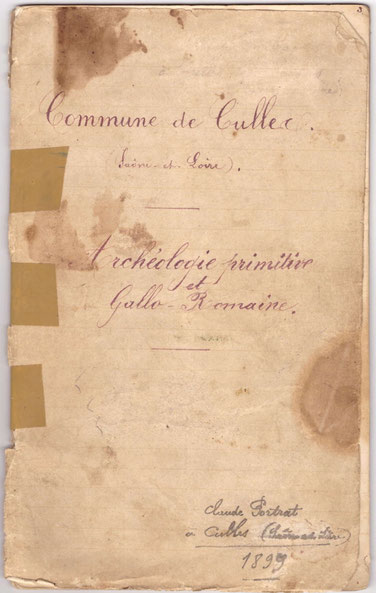 Commune de Culles.
(Saône-et-Loire).
Archéologie primitive
et
Gallo-Romaine.
Claude Portrat
à Culles (Saône-et-Loire)
1899